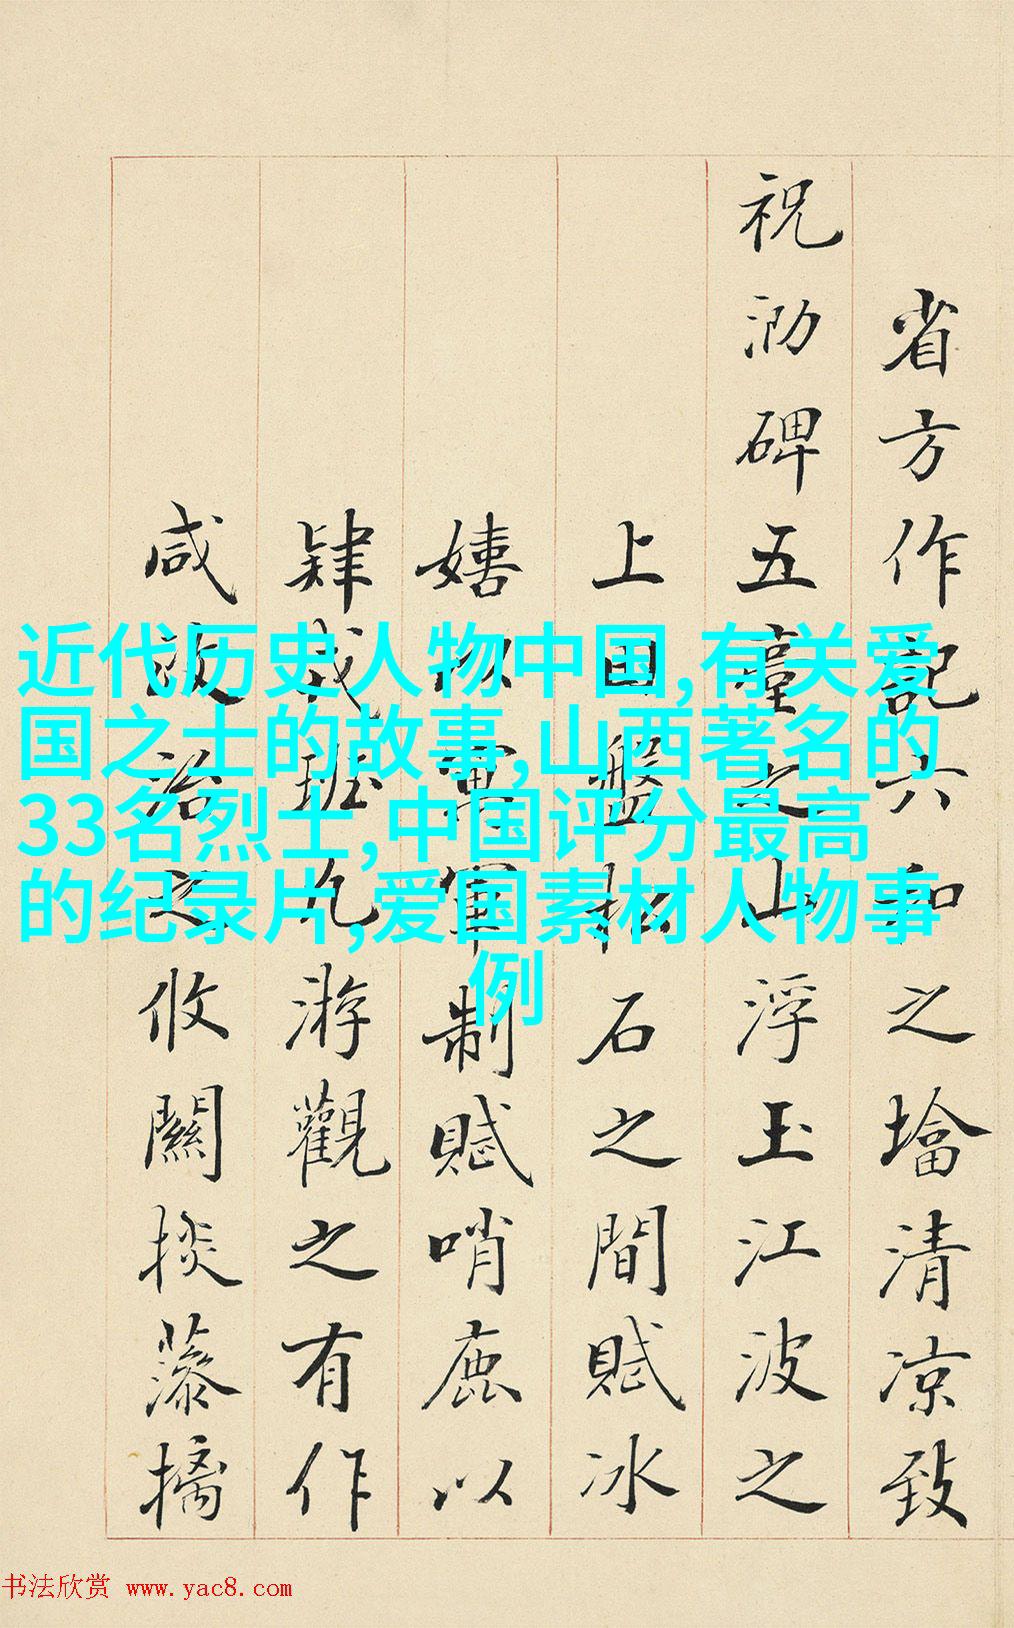 近代历史人物中国,有关爱
国之士的故事,山西著名的
33名烈士,中国评分最高
的纪录片,爱国素材人物事
例
省方作記六和之墖清凉致
祝泐碑五臺之山浮玉江波之
上田盤松石之間賦冰
嬉以寓軍制賦哨鹿以
肄武班凡游觀之有作
咸政治之攸關掞藻摛
书法欣赏 www.yac8.com